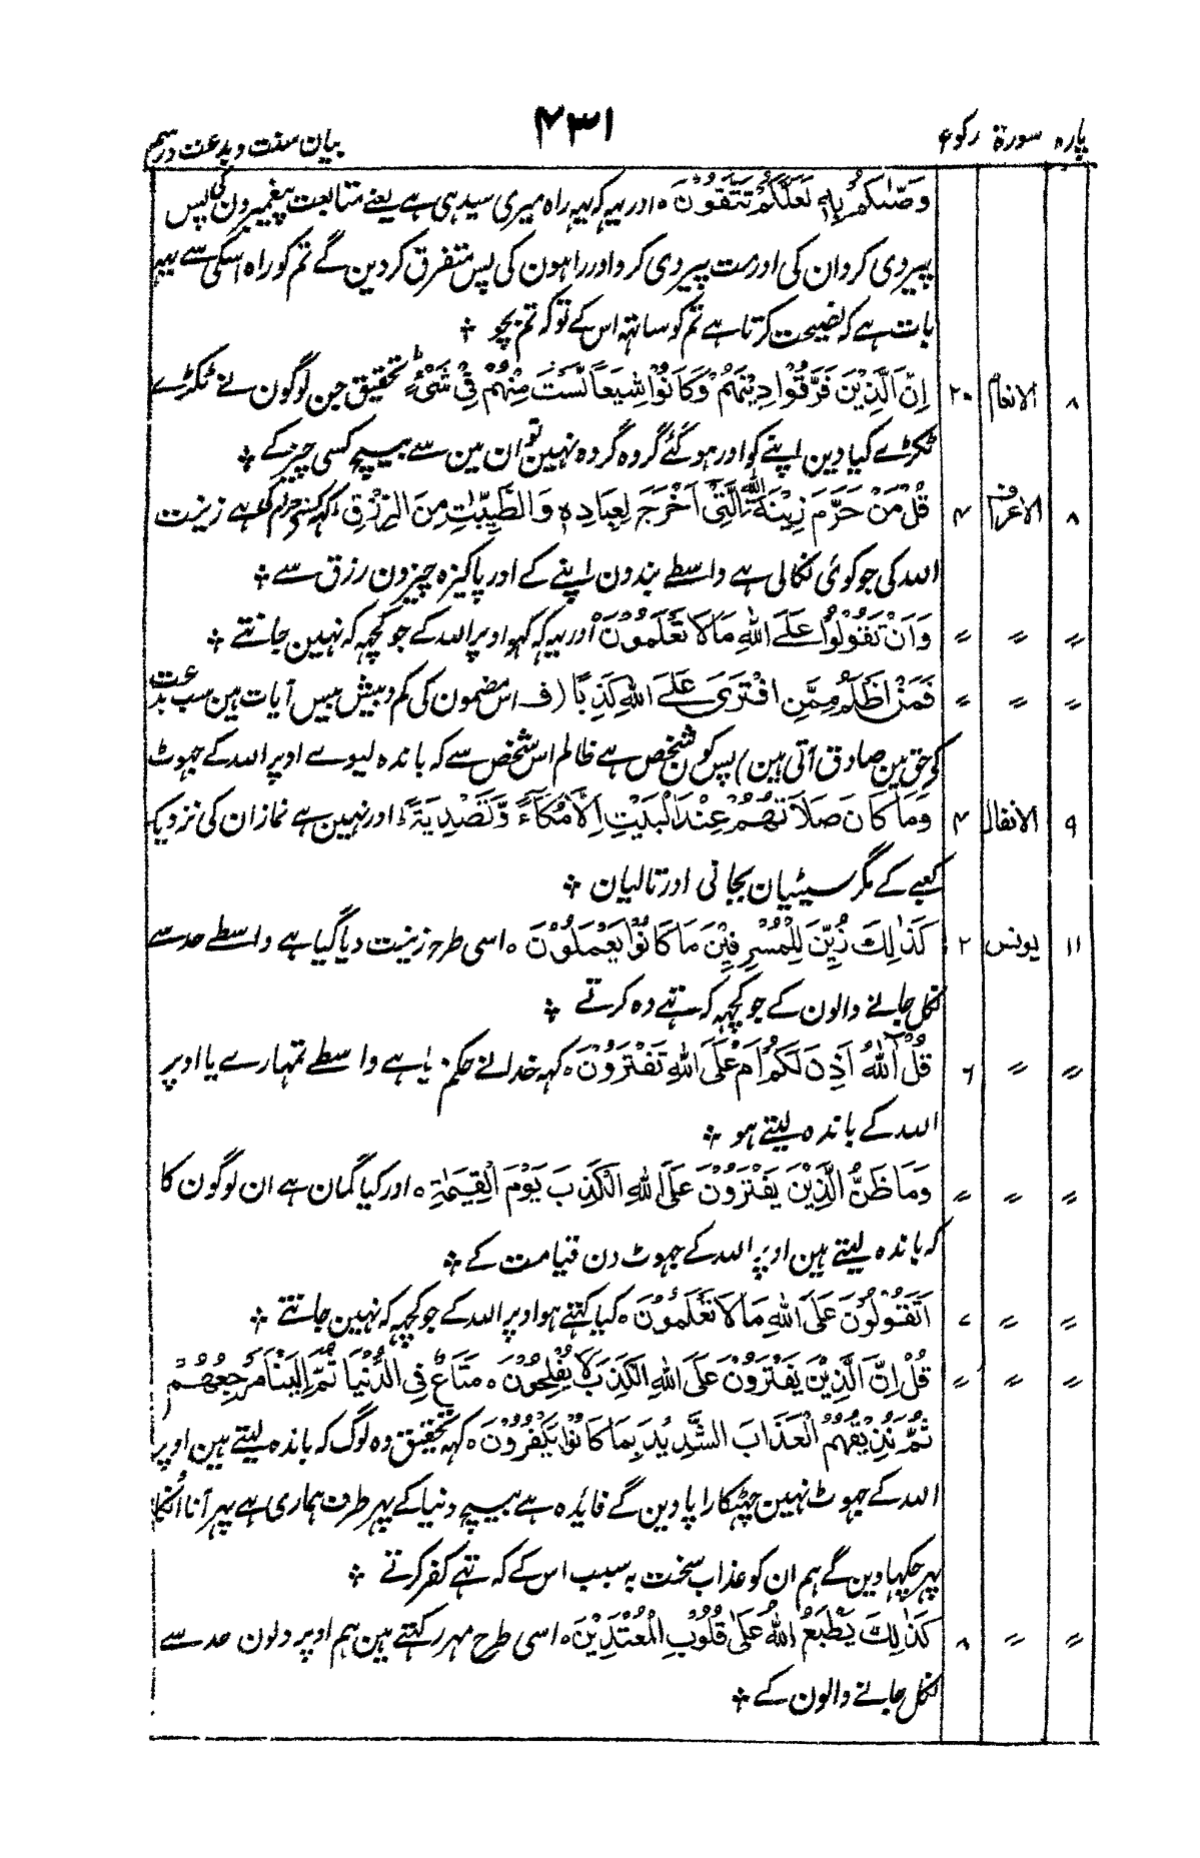 پارہ سورۃ رکوع ۴۳۱ بیان سنت و بدعت و رسم
وَصّٰىكُمْ بِهٖ لَعَلَّكُمْ تَتَّقُوْنَ ہ اور یہہ کہ یہہ راہ میری سیدہی ہے یعنے متابعت پیغمبرون کی پس
پیروی کرو ان کی اور مت پیروی کرو اور راہون کی پس متفرق کر دین گے تم کو راہ اسکی سے یہہ
بات ہے کہ نصیحت کرتا ہے تم کو ساتہہ اس کے تو کہ تم بچو ؞
۸ الانعام ۲۰ اِنَّ الَّذِيْنَ فَرَّقُوْا دِيْنَهُمْ وَكَانُوْا شِيَعًا لَّسْتَ مِنْهُمْ فِيْ شَيْءٍ ط تحقیق جن لوگون نے ٹکڑے
ٹکڑے کیا دین اپنے کو اور ہو گئے گروہ گروہ نہین تو ان مین سے بیچ کسی چیز کے ؞
۸ الاعراف ۴ قُلْ مَنْ حَرَّمَ زِيْنَةَ اللّٰهِ الَّتِيْ اَخْرَجَ لِعِبَادِهٖ وَالطَّيِّبٰتِ مِنَ الرِّزْقِ کہہ کسنے حرام کی ہے زینت
اللہ کی جو کوئی نکالی ہے واسطے بندون اپنے کے اور پاکیزہ چیزون رزق سے ؞
〃 〃 〃 وَاَنْ تَقُوْلُوْا عَلَى اللّٰهِ مَا لَا تَعْلَمُوْنَ اور یہہ کہ کہو اوپر اللہ کے جو کچہہ کہ نہین جانتے ؞
〃 〃 〃 فَمَنْ اَظْلَمُ مِمَّنِ افْتَرٰى عَلَى اللّٰهِ كَذِبًا (ف اس مضمون کی کم و بیش بیس آیات ہین سب بدعت
کے حق مین صادق آتی ہین) پس کون شخص ہے ظالم اس شخص سے کہ باندہ لیوے اوپر اللہ کے جہوٹ
۹ الانفال ۴ وَمَا كَانَ صَلَاتُهُمْ عِنْدَ الْبَيْتِ اِلَّا مُكَآءً وَّتَصْدِيَةً ط اور نہین ہے نماز ان کی نزدیک
کعبے کے مگر سیٹیان بجانی اور تالیان ؞
۱۱ یونس ۲ كَذٰلِكَ زُيِّنَ لِلْمُسْرِفِيْنَ مَا كَانُوْا يَعْمَلُوْنَ ہ اسی طرح زینت دیا گیا ہے واسطے حد سے
نکل جانے والون کے جو کچہہ کہ تہے وہ کرتے ؞
〃 〃 ۶ قُلْ آٰللّٰهُ اَذِنَ لَكُمْ اَمْ عَلَى اللّٰهِ تَفْتَرُوْنَ ہ کہہ خدا نے حکم دیا ہے واسطے تمہارے یا اوپر
اللہ کے باندہ لیتے ہو ؞
〃 〃 〃 وَمَا ظَنُّ الَّذِيْنَ يَفْتَرُوْنَ عَلَى اللّٰهِ الْكَذِبَ يَوْمَ الْقِيٰمَةِ ہ اور کیا گمان ہے ان لوگون کا
کہ باندہ لیتے ہین اوپر اللہ کے جہوٹ دن قیامت کے ؞
〃 〃 ۷ اَتَقُوْلُوْنَ عَلَى اللّٰهِ مَا لَا تَعْلَمُوْنَ ہ کیا کہتے ہو اوپر اللہ کے جو کچہہ کہ نہین جانتے ؞
〃 〃 〃 قُلْ اِنَّ الَّذِيْنَ يَفْتَرُوْنَ عَلَى اللّٰهِ الْكَذِبَ لَا يُفْلِحُوْنَ ہ مَتَاعٌ فِي الدُّنْيَا ثُمَّ اِلَيْنَا مَرْجِعُهُمْ
ثُمَّ نُذِيْقُهُمُ الْعَذَابَ الشَّدِيْدَ بِمَا كَانُوْا يَكْفُرُوْنَ ہ کہہ تحقیق وہ لوگ کہ باندہ لیتے ہین اوپر
اللہ کے جہوٹ نہین چہٹکارا پاوین گے فایدہ ہے بیچ دنیا کے پہر طرف ہماری ہے پہر آنا انکا
پہر چکہاوین گے ہم ان کو عذاب سخت بہ سبب اس کے کہ تہے کفر کرتے ؞
〃 〃 ۸ كَذٰلِكَ نَطْبَعُ اللّٰهُ عَلٰى قُلُوْبِ الْمُعْتَدِيْنَ ہ اسی طرح مہر رکہتے ہین ہم اوپر دلون حد سے
نکل جانے والون کے ؞